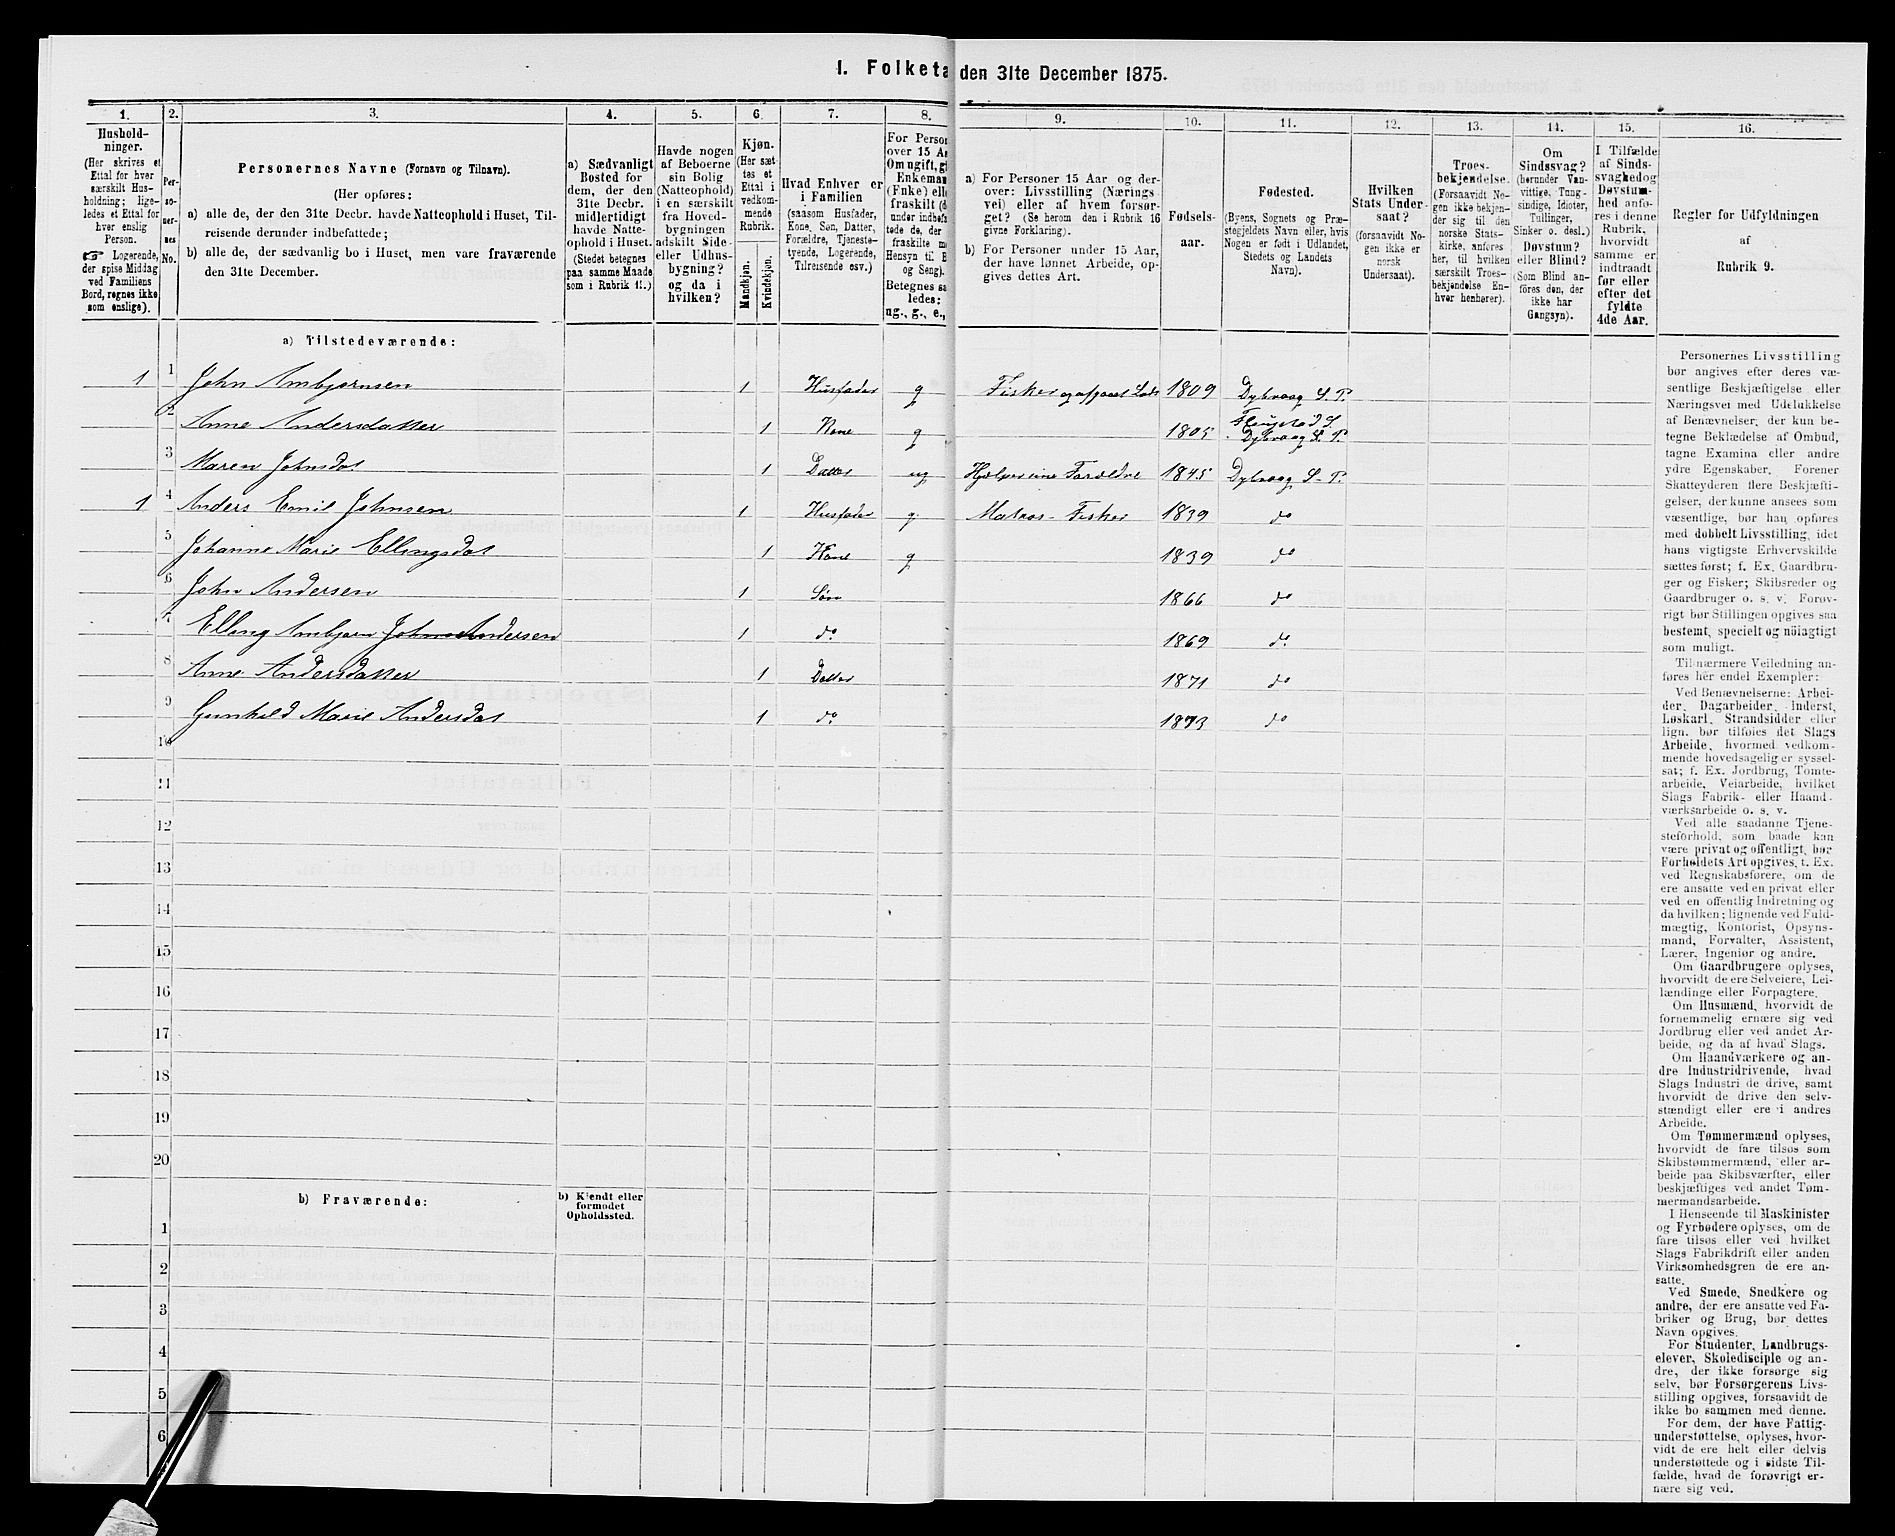 I. Folketa den 31te December 1875.
1.
2.
3.
4.
5.
6.
7.
8.
9.
10.
11.
12.
13.
14.
15.
16.
Hushold-
ninger.
(Her skrives et
Ettal for hver
særskilt Hus-
holdning; lige-
ledes et Ettal for
hver enslig
Person.
☞ Logerende,
der spise Middag
ved Familiens
Bord, regnes ikke
som enslige).
Per-
so-
ner-
nes
No.
Personernes Navne (Fornavn og Tilnavn).
(Her opføres:
a) alle de, der den 31te Decbr. havde Natteophold i Huset, Til-
reisende derunder indbefattede;
b) alle de, der sædvanlig bo i Huset, men vare fraværende
den 31te December.
a) Sædvanligt
Bosted for
dem, der den
31te Decbr.
midlertidigt
havde Natte-
ophold i Huset.
(Stedet betegnes
paa samme Maade
som i Rubrik 11.)
Havde nogen
af Beboerne
sin Bolig
(Natteophold)
i en særskilt
fra Hoved-
bygningen
adskilt Side-
eller Udhus-
bygning?
og da i
hvilken?
Kjøn.
(Her sæt-
tes et
Ettal i
vedkom-
mende
Rubrik.
Mandkjøn.
Kvindekjøn.
Hvad Enhver er
i Familien
(saasom Husfader,
Kone, Søn, Datter,
Forældre, Tjeneste-
tyende, Logerende,
Tilreisende osv.)
For Person
over 15 Aa
Om ngift, gi
Enkeman
(Fnke) elle
fraskilt (d
under indbefa
tede de, der
fraskilte me
Hensyn til B
og Seng).
Betegnes sa
ledes:
ug., g., e.,
a) For Personer 15 Aar og der-
over: Livsstilling (Nærings-
vei) eller af hvem forsør-
get? (Se herom den i Rubrik 16
givne Forklaring).
b) For Personer under 15 Aar,
der have lønnet Arbeide, op-
gives dettes Art.
Fødsels-
aar.
Fødested.
(Byens, Sognets og Præ-
stegjeldets Navn eller, hvis
Nogen er født i Udlandet,
Stedets og Landets
Navn).
Hvilken
Stats Under-
saat?
(forsaavidt No-
gen ikke er
norsk
Undersaat).
Troes-
bekjendelse.
(Forsaavidt No-
gen ikke bekjen-
der sig til den
norske Stats-
kirke, anføres
her, til hvilken
særskilt Troes-
bekjendelse En-
hver henhører).
Om
Sindssvag?
(herunder Van-
vittige, Tung-
sindige, Idioter,
Tullinger,
Sinker o. desl.)
Døvstum?
eller Blind?
(Som Blind an-
føres den, der
ikke har
Gangsyn).
I Tilfælde
af Sinds-
svaghed og
Døvstum-
hed anfø-
res i denne
Rubrik,
hvorvidt
samme er
indtraadt
før eller
efter det
fyldte
4de Aar.
Regler for Udfyldningen
af
Rubrik 9.
a) Tilstedeværende:
1 1 John Ambjørnsen 1 Husfader g Fisker og afgaaet Lods 1809 Dybvaag S. P.
2 Anne Andersdatter 1 Kone g 1805 Flaugstad S. Dybvaag S. P.
3 Maren Johnsdat 1 Datter ug Hjelper sine Forældre 1845 Dybvaag S. P.
1 4 Anders Emil Johnsen 1 Husfader g. Matros - Fisker 1839 do
5 Johanne Marie Ellingsdat 1 Kone g 1839 do
6 John Andersen 1 Søn 1866 do
7 Elling Ambjørn Johns Andersen 1 do 1869 do
8 Anne Andersdatter 1 Datter 1871 do
9 Gunhild Marie Andersdat 1 do 1873 do
10
11
12
13
14
15
16
17
18
19
20
b) Fraværende:
b) Kjendt eller
formodet
Opholdssted.
1
2
3
4
5
6
Personernes Livsstilling
bør angives efter deres væ-
sentlige Beskjæftigelse eller
Næringsvei med Udelukkelse
af Benævnelser, der kun be-
tegne Beklædelse af Ombud,
tagne Examina eller andre
ydre Egenskaber. Forener
Skatteyderen flere Beskjæfti-
gelser, der kunne ansees som
væsentlige, bør han opføres
med dobbelt Livsstilling, idet
hans vigtigste Erhvervskilde
sættes først; f. Ex. Gaardbru-
ger og Fisker; Skibsreder og
Gaardbruger o. s. v. Forøv-
rigt bør Stillingen opgives saa
bestemt, specielt og nöiagtigt
som muligt.
Til nærmere Veiledning an-
føres her endel Exempler:
Ved Benævnelserne: Arbei-
der, Dagarbeider, Inderst,
Løskarl, Strandsidder eller
lign. bør tilføies det Slags
Arbeide, hvormed vedkom-
mende hovedsagelig er syssel-
sat; f. Ex. Jordbrug, Tomte-
arbeide, Veiarbeide, hvilket
Slags Fabrik- eller Haand-
værksarbeide o. s. v.
Ved alle saadanne Tjene-
steforhold, som baade kan
være privat og offentligt, bør
Forholdets Art opgives, t. Ex.
ved Regnskabsførere, om de
ere ansatte ved en privat eller
ved en offentlig Indretning og
da hvilken; lignende ved Fuld-
mægtig, Kontorist, Opsyns-
mand, Forvalter, Assistent,
Lærer, Ingeniør og andre.
Om Gaardbrugere oplyses,
hvorvidt de ere Selveiere, Lei-
lændinge eller Forpagtere.
Om Husmænd, hvorvidt de
fornemmelig ernære sig ved
Jordbrug eller ved andet Ar-
beide, og da af hvad Slags.
Om Haandværkere og an-
dre Industridrivende, hvad
Slags Industri de drive, samt
hvorvidt de drive den selv-
stændigt eller ere i andres
Arbeide.
Om Tømmermænd oplyses,
hvorvidt de fare tilsøs som
Skibstømmermænd, eller ar-
beide paa Skibsværfter, eller
beskjæftiges ved andet Tøm-
mermandsarbeide.
I Henseende til Maskinister
og Fyrbødere oplyses, om de
fare tilsøs eller ved hvilket
Slags Fabrikdrift eller anden
Virksomhedsgren de ere an-
satte.
Ved Smede, Snedkere og
andre, der ere ansatte ved Fa-
briker og Brug, bør dettes
Navn opgives.
For Studenter, Landbrugs-
elever, Skoledisciple og an-
dre, der ikke forsørge sig
selv, bør Forsørgerens Livs-
stilling opgives, forsaavidt de
ikke bo sammen med denne.
For dem, der have Fattig-
understøttelse, oplyses, hvor-
vidt de ere helt eller delvis
understøttede og i sidste Til-
fælde, hvad de forøvrigt er-
nære sig ved.